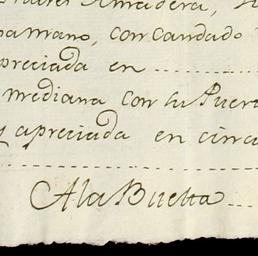 Amadera,
pamano, con candado
preciada en
mediana con su Puer
y apreciada en cincu
A la Buelta